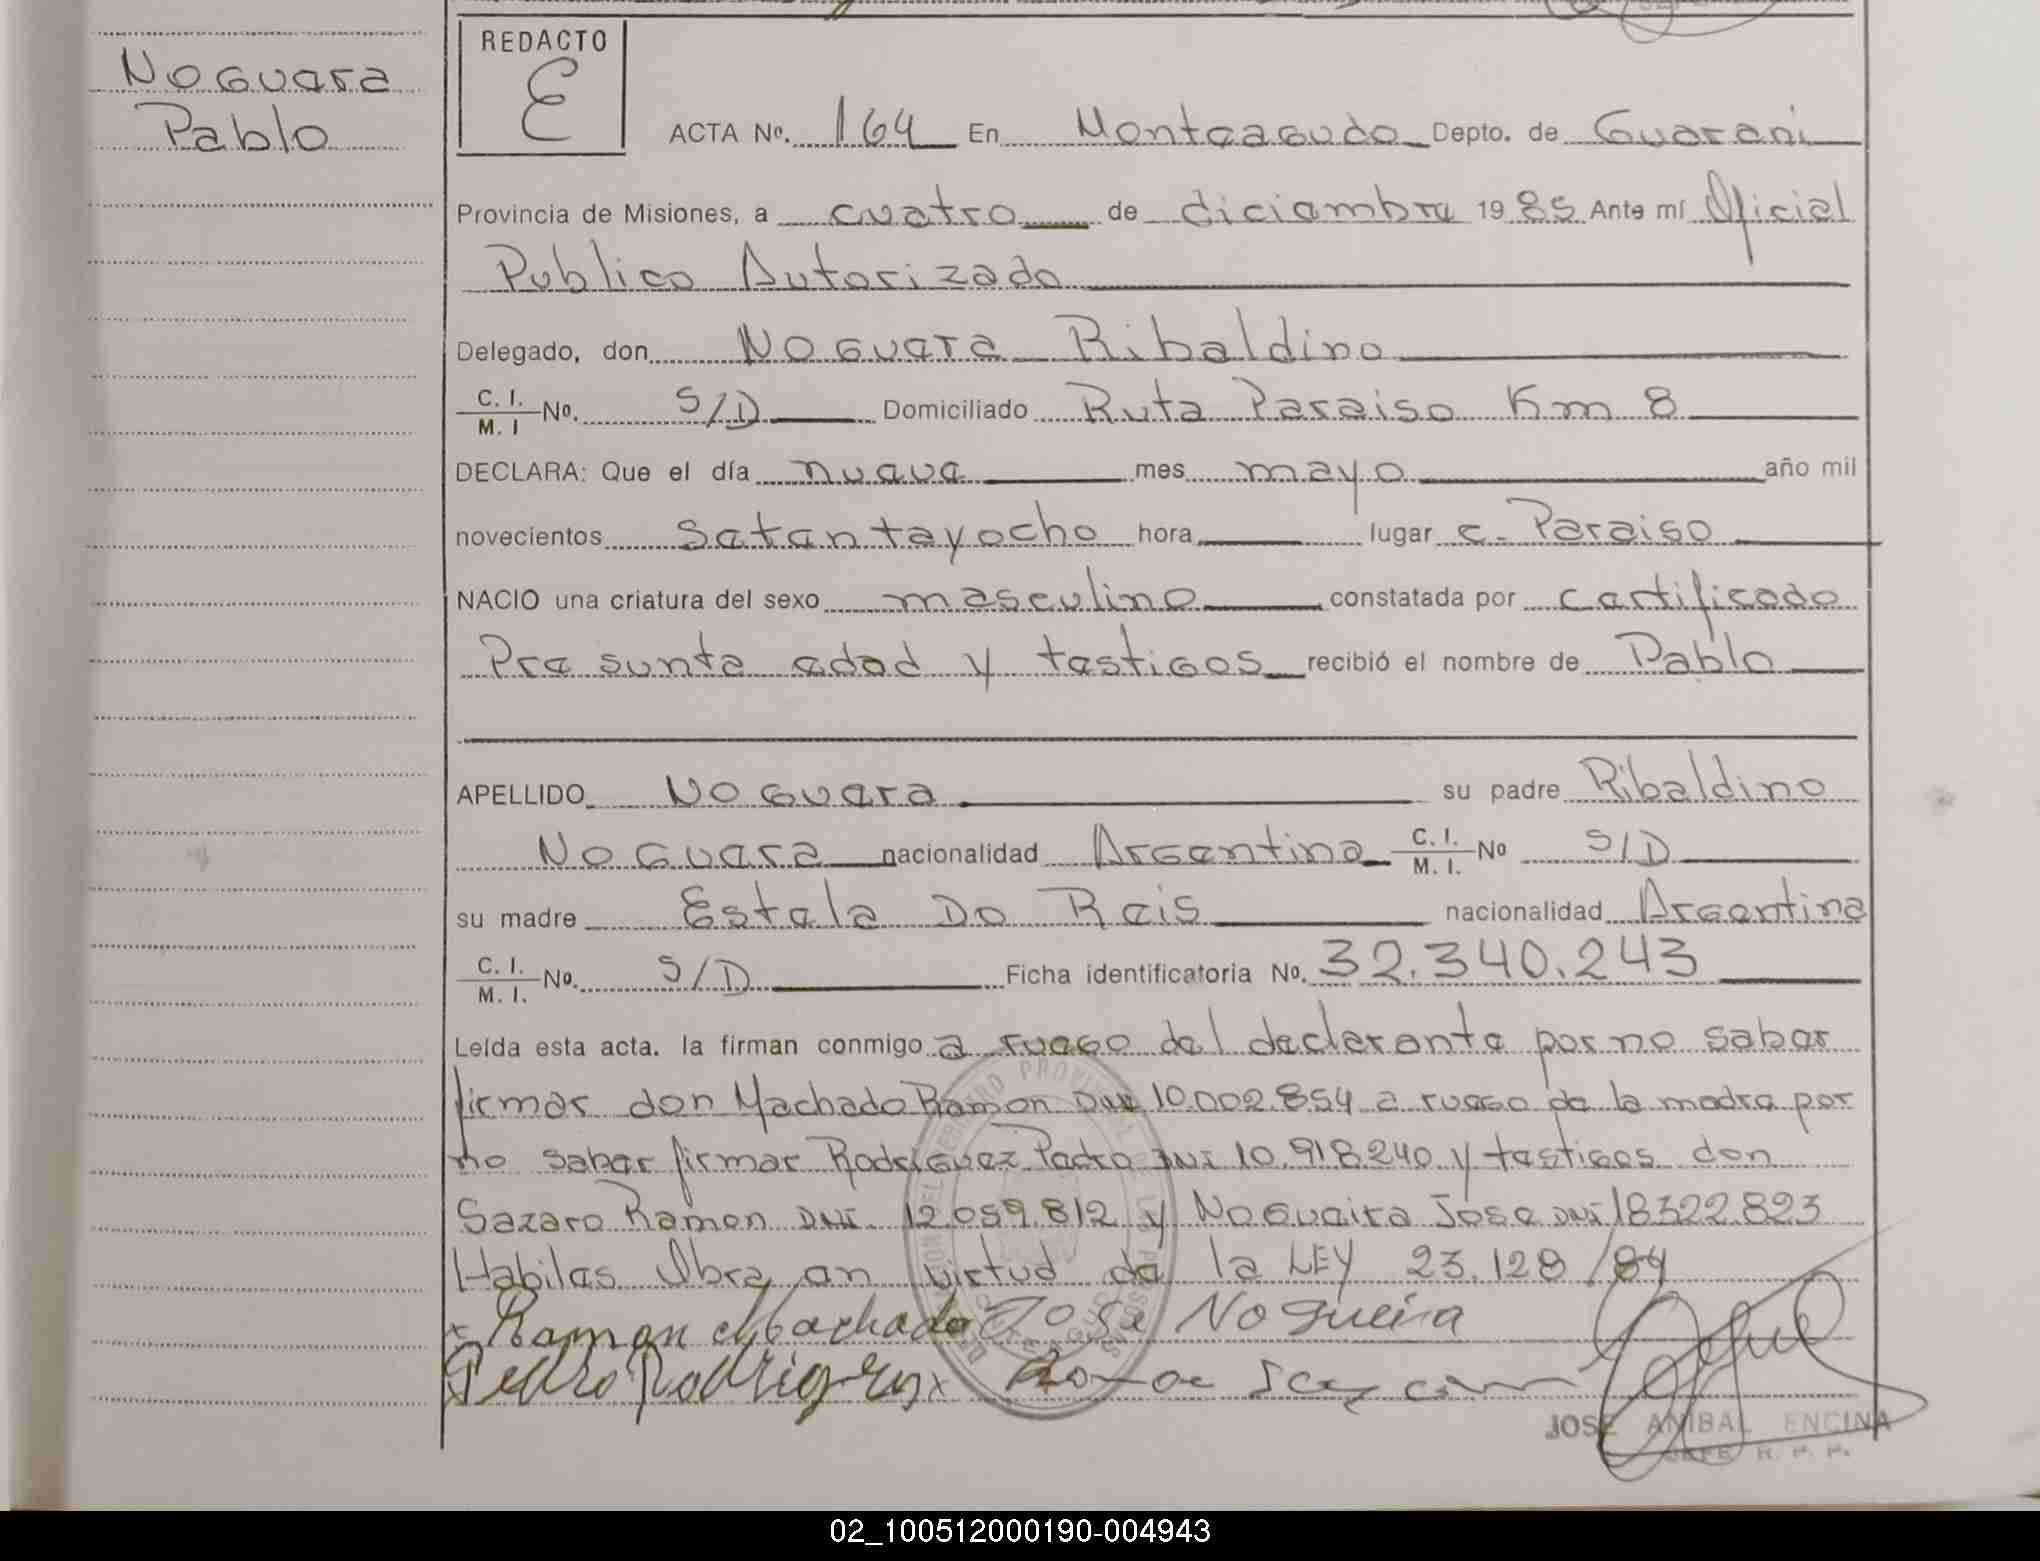 Noguera
Pablo
REDACTO
E
ACTA Nº. 164 En Monteagudo Depto. de Guarani
Provincia de Misiones, a cuatro de diciembre 1985 Ante mí Oficial
Publico Autorizado
Delegado, don Noguera Ribaldino
C. I. / M. I Nº. S/D Domiciliado Ruta Paraiso Km 8
DECLARA: Que el día nueve mes mayo año mil
novecientos setentayocho hora lugar c. Paraiso
NACIO una criatura del sexo masculino constatada por certificado
Presunta edad y testigos recibió el nombre de Pablo
APELLIDO Noguera su padre Ribaldino
Noguera nacionalidad Argentina C. I. / M. I. Nº S/D
su madre Estela Do Reis nacionalidad Argentina
C. I. / M. I. Nº. S/D Ficha identificatoria Nº. 32.340.243
Leída esta acta. la firman conmigo a ruego del declarante por no saber
firmar don Machado Ramon DNI 10.002.854 a ruego de la madre por
no saber firmar Rodriguez Pedro DNI 10.918.240 y testigos don
Sazaro Ramon DNI. 12.059.812 y Nogueira Jose DNI 18322.823
Habiles Obra en virtud de la LEY 23.128/84
Ramon Machado Jose Nogueira
Pedro Rodriguez x
JOSE ANIBAL ENCINA
JEFE R. P. P.
02_100512000190-004943